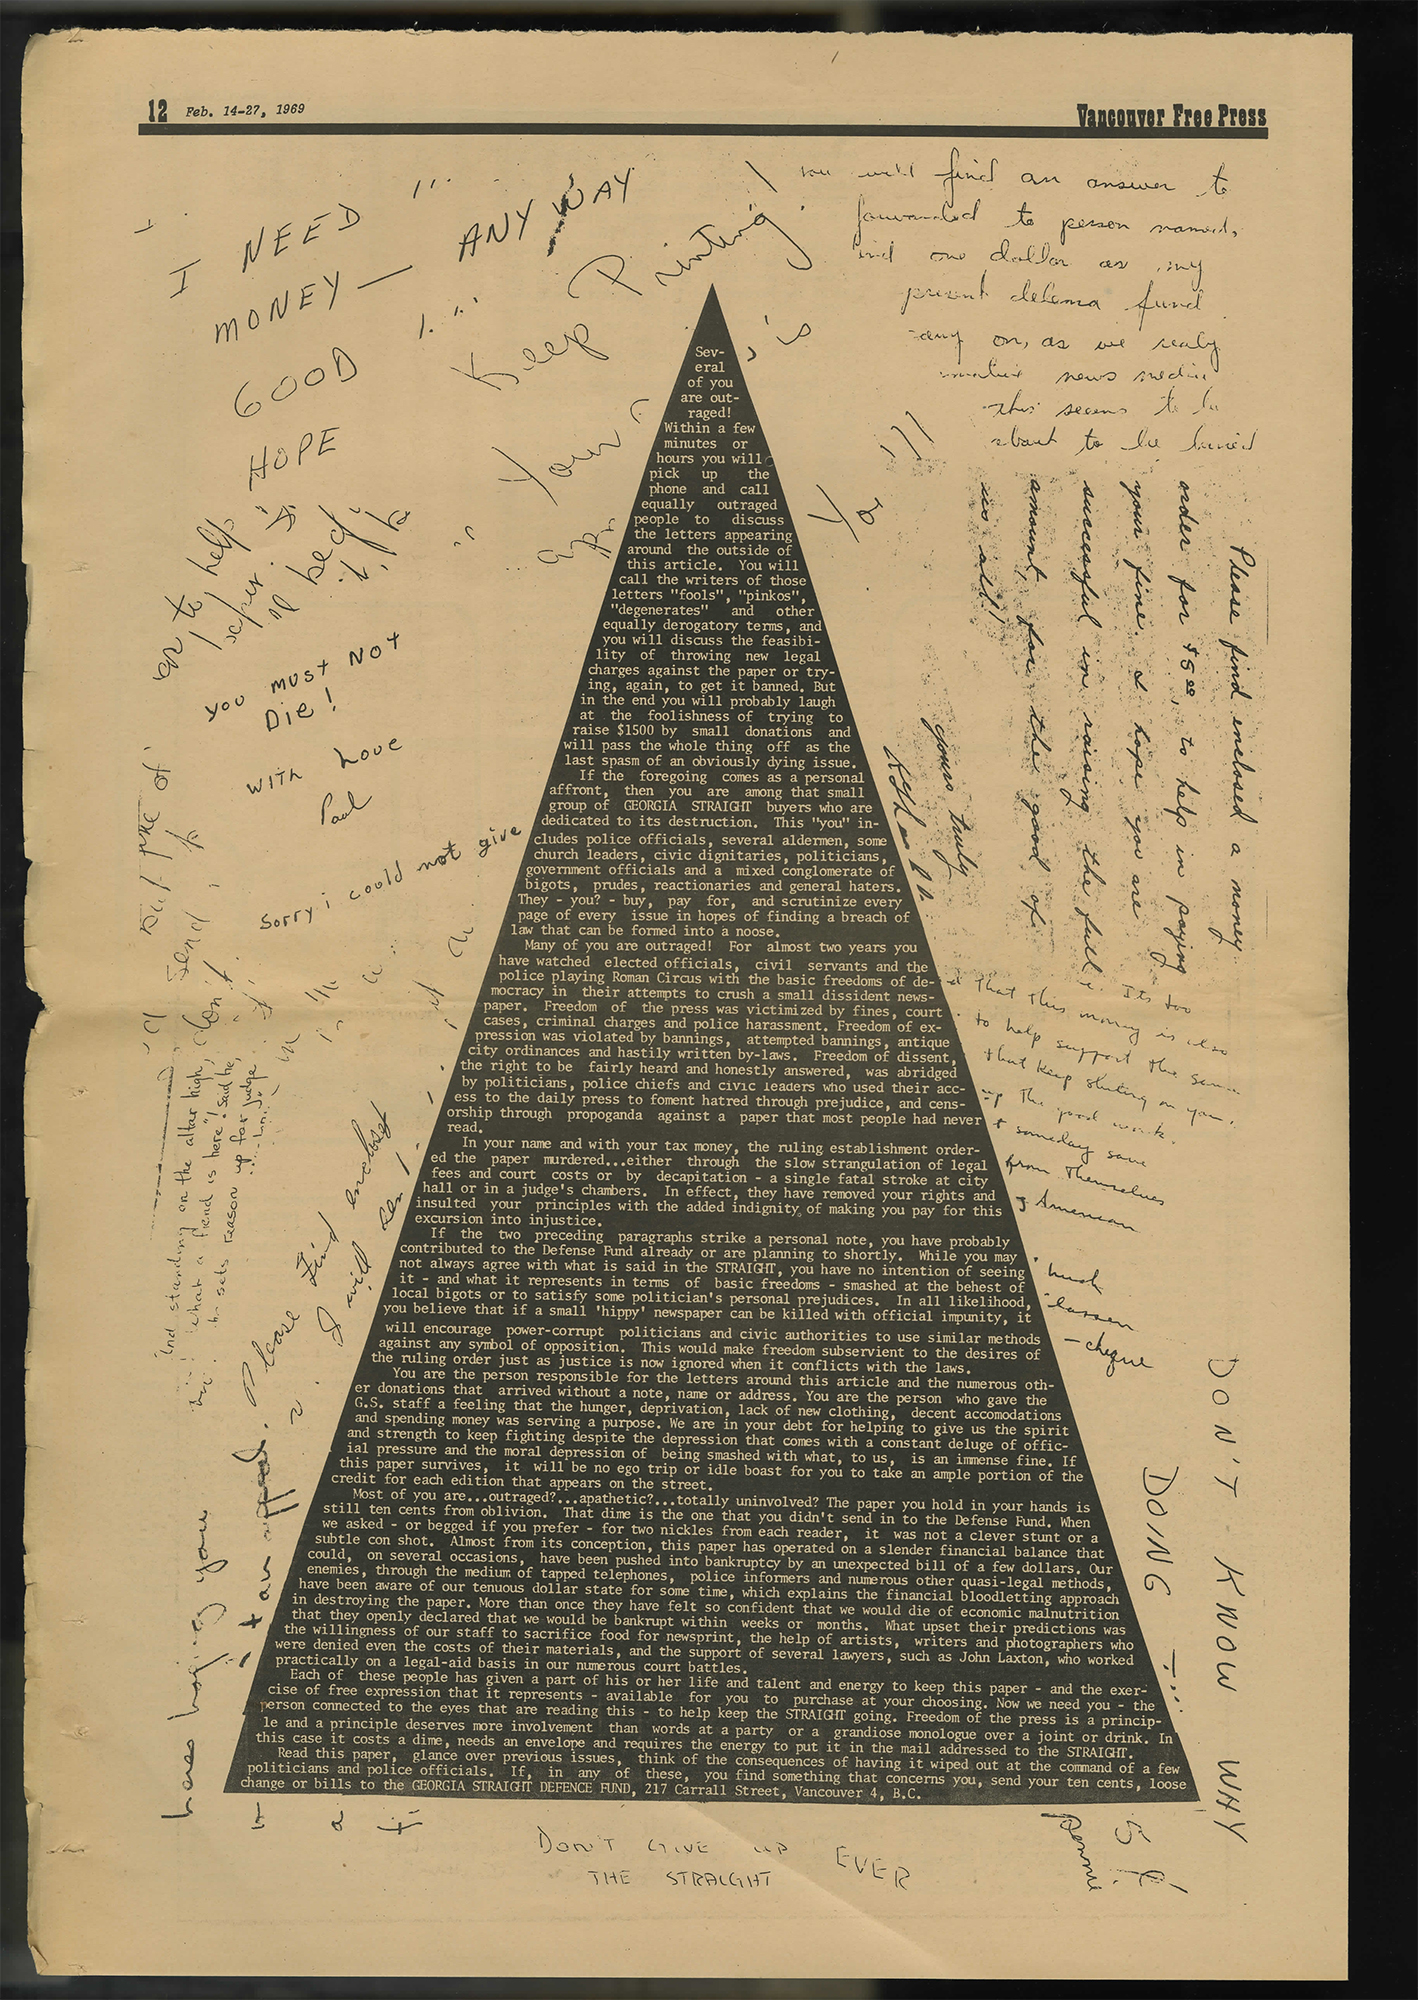 12 Feb. 14-27, 1969
Vancouver Free Press
I NEED
MONEY— ANYWAY
GOOD
HOPE
Keep Printing!
you will find an answer to
forwarded to person named,
one dollar as my
present delema fund
any on, as we realy
news media
this seems to be
about to be buried
Your
to help
YOU MUST NOT
DiE!
WiTH Love
Paul
Sorry i could not give
Please find enclosed a money
order for $5.00, to help in paying
your fine. I hope you are
successful in raising the full
amount, for the good of
us all!
yours truly
Its too
that this money is also
to help support the same
that keep shitting on you.
up the good work.
& someday save
from themselves
American
— cheque
send
don't
standing on the altar high,
what a fiend is here! said he,
sets reason up for judge
Please find enclosed
I will
an appeal.
heres hoping you
DON'T KNOW WHY
DOING
5
DON'T GIVE UP EVER
THE STRAIGHT
Sev-
eral
of you
are out-
raged!
Within a few
minutes or
hours you will
pick up the
phone and call
equally outraged
people to discuss
the letters appearing
around the outside of
this article. You will
call the writers of those
letters "fools", "pinkos",
"degenerates" and other
equally derogatory terms, and
you will discuss the feasibi-
lity of throwing new legal
charges against the paper or try-
ing, again, to get it banned. But
in the end you will probably laugh
at the foolishness of trying to
raise $1500 by small donations and
will pass the whole thing off as the
last spasm of an obviously dying issue.
If the foregoing comes as a personal
affront, then you are among that small
group of GEORGIA STRAIGHT buyers who are
dedicated to its destruction. This "you" in-
cludes police officials, several aldermen, some
church leaders, civic dignitaries, politicians,
government officials and a mixed conglomerate of
bigots, prudes, reactionaries and general haters.
They - you? - buy, pay for, and scrutinize every
page of every issue in hopes of finding a breach of
law that can be formed into a noose.
Many of you are outraged! For almost two years you
have watched elected officials, civil servants and the
police playing Roman Circus with the basic freedoms of de-
mocracy in their attempts to crush a small dissident news-
paper. Freedom of the press was victimized by fines, court
cases, criminal charges and police harassment. Freedom of ex-
pression was violated by bannings, attempted bannings, antique
city ordinances and hastily written by-laws. Freedom of dissent,
the right to be fairly heard and honestly answered, was abridged
by politicians, police chiefs and civic leaders who used their acc-
ess to the daily press to foment hatred through prejudice, and cens-
orship through propoganda against a paper that most people had never
read.
In your name and with your tax money, the ruling establishment order-
ed the paper murdered...either through the slow strangulation of legal
fees and court costs or by decapitation - a single fatal stroke at city
hall or in a judge's chambers. In effect, they have removed your rights and
insulted your principles with the added indignity of making you pay for this
excursion into injustice.
If the two preceding paragraphs strike a personal note, you have probably
contributed to the Defense Fund already or are planning to shortly. While you may
not always agree with what is said in the STRAIGHT, you have no intention of seeing
it - and what it represents in terms of basic freedoms - smashed at the behest of
local bigots or to satisfy some politician's personal prejudices. In all likelihood,
you believe that if a small 'hippy' newspaper can be killed with official impunity, it
will encourage power-corrupt politicians and civic authorities to use similar methods
against any symbol of opposition. This would make freedom subservient to the desires of
the ruling order just as justice is now ignored when it conflicts with the laws.
You are the person responsible for the letters around this article and the numerous oth-
er donations that arrived without a note, name or address. You are the person who gave the
G.S. staff a feeling that the hunger, deprivation, lack of new clothing, decent accomodations
and spending money was serving a purpose. We are in your debt for helping to give us the spirit
and strength to keep fighting despite the depression that comes with a constant deluge of offic-
ial pressure and the moral depression of being smashed with what, to us, is an immense fine. If
this paper survives, it will be no ego trip or idle boast for you to take an ample portion of the
credit for each edition that appears on the street.
Most of you are...outraged?...apathetic?...totally uninvolved? The paper you hold in your hands is
still ten cents from oblivion. That dime is the one that you didn't send in to the Defense Fund. When
we asked - or begged if you prefer - for two nickles from each reader, it was not a clever stunt or a
subtle con shot. Almost from its conception, this paper has operated on a slender financial balance that
could, on several occasions, have been pushed into bankruptcy by an unexpected bill of a few dollars. Our
enemies, through the medium of tapped telephones, police informers and numerous other quasi-legal methods,
have been aware of our tenuous dollar state for some time, which explains the financial bloodletting approach
in destroying the paper. More than once they have felt so confident that we would die of economic malnutrition
that they openly declared that we would be bankrupt within weeks or months. What upset their predictions was
the willingness of our staff to sacrifice food for newsprint, the help of artists, writers and photographers who
were denied even the costs of their materials, and the support of several lawyers, such as John Laxton, who worked
practically on a legal-aid basis in our numerous court battles.
Each of these people has given a part of his or her life and talent and energy to keep this paper - and the exer-
cise of free expression that it represents - available for you to purchase at your choosing. Now we need you - the
person connected to the eyes that are reading this - to help keep the STRAIGHT going. Freedom of the press is a princip-
le and a principle deserves more involvement than words at a party or a grandiose monologue over a joint or drink. In
this case it costs a dime, needs an envelope and requires the energy to put it in the mail addressed to the STRAIGHT.
Read this paper, glance over previous issues, think of the consequences of having it wiped out at the command of a few
politicians and police officials. If, in any of these, you find something that concerns you, send your ten cents, loose
change or bills to the GEORGIA STRAIGHT DEFENCE FUND, 217 Carrall Street, Vancouver 4, B.C.